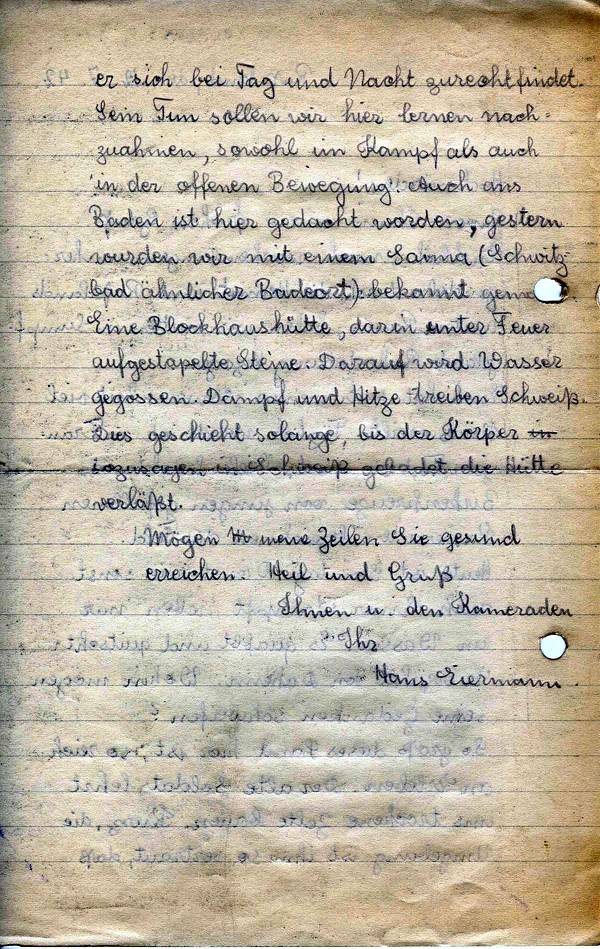 er sich bei Tag und Nacht zurechtfindet.
Sein Tun sollen wir hier lernen nach=
zuahmen, sowohl im Kampf als auch
in der offenen Bewegung. Auch ans
Baden ist hier gedacht worden, gestern
wurden wir mit einem Sauna (Schwitz-
bad ähnlicher Badeort) bekannt gema
Eine Blockhaushütte, darin unter Feuer
aufgestapelte Steine. Darauf wird Wasser
gegossen. Dampf und Hitze treiben Schweiß.
Dies geschieht solange, bis der Körper in
sozusagen in Schweiß gebadet die Hütte
verläßt.
Mögen meine Zeilen Sie gesund
erreichen. Heil und Gruß
Ihnen u. den Kameraden
Ihr
Hans Eiermann.